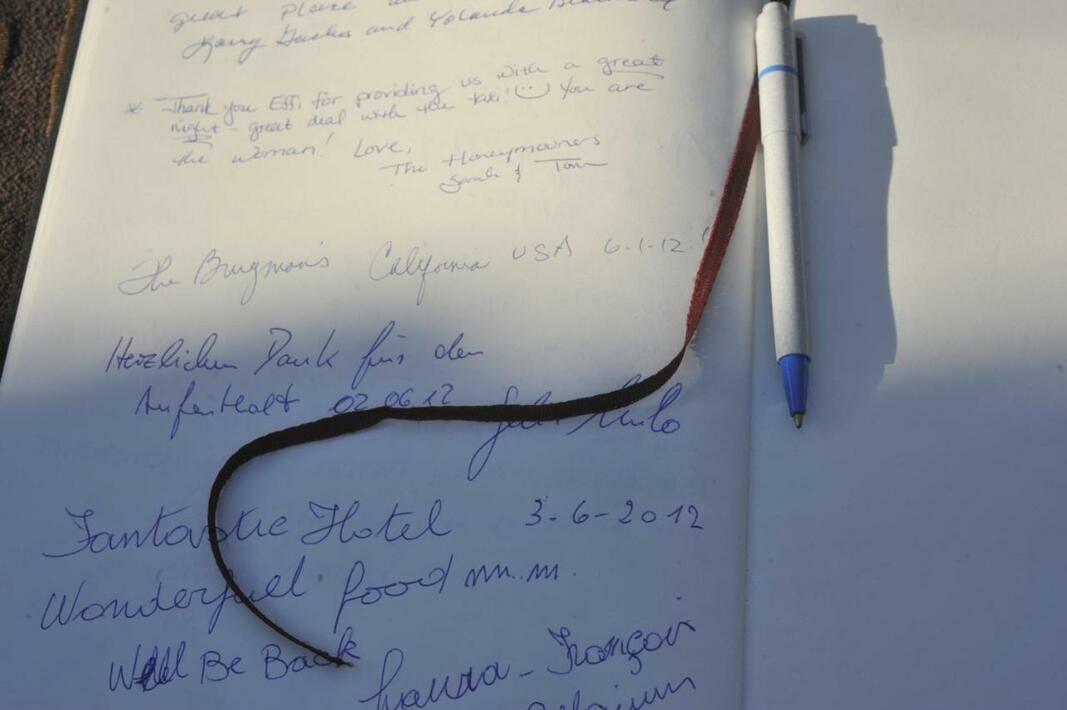 great place
and Yolanda
* Thank you Effi for providing us with a great
night - great deal with the taxi! You are
the woman! Love,
The Honeymooners
Sarah & Tom
The Brugman's California USA 6.1.12
Herzlichen Dank für den
Aufenthalt 02.06.12
Fantastic Hotel 3-6-2012
Wonderfull food mm.m.
Will Be Back
François
Belgium